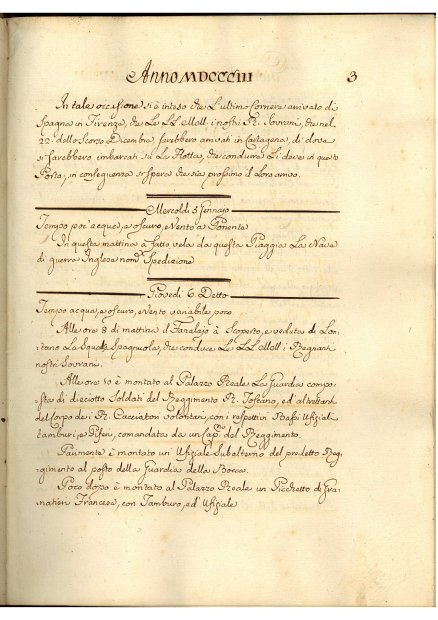 Anno MDCCCIII
3
In tale occasione si è inteso che L'ultimo Corriere arrivato di
Spagna in Firenze, che Le LL. MM. i nostri R. Sovrani, che nel
22. dello Scorto Dicembre sarebbero arrivati in Cartagena, di dove
si sarebbero imbarcati su La Flotta, che condurre Li deve in questo
Porto, in conseguenza si spera che sia prossimo il Loro arrivo.
Mercoldi 5. Gennajo
Tempo poc' acqua, e oscuro, e Vento a Ponente
In questa mattina à fatto vela da questa Piaggia La Nave
di guerra Inglese nom. Spedizione
Giovedi 6. Detto
Tempo acqua, e oscuro, e Vento variabile poco.
Alle ore 8 di mattina il Fanalajo à Scoperto, e veduta di Lon-
tano La Squadra Spagnuola, che conduce Le LL. MM. i Regnanti
nostri Sovrani.
Alle ore 10 è montato al Palazzo Reale La Guardia compo-
sta di dieciotto Soldati del Reggimento R. Toscano, ed altrettanti
del Corpo dei R. Cacciatori Volontari, con i respettivi Bassi Ufiziali
tamburi, e Pifferi, comandata da un Cap. del Reggimento.
Parimente è montato un Ufiziale Subalterno del predetto Reg-
gimento al posto della Guardia della Bocca.
Poco dopo è montato al Palazzo Reale un Picchetto di Gra-
natieri Francesi, con Tamburo, ed Ufiziale